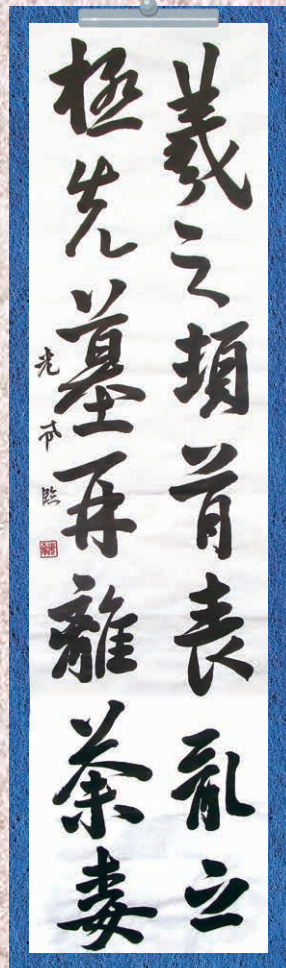 羲之頓首喪亂之
極先墓再離荼毒
光 臨